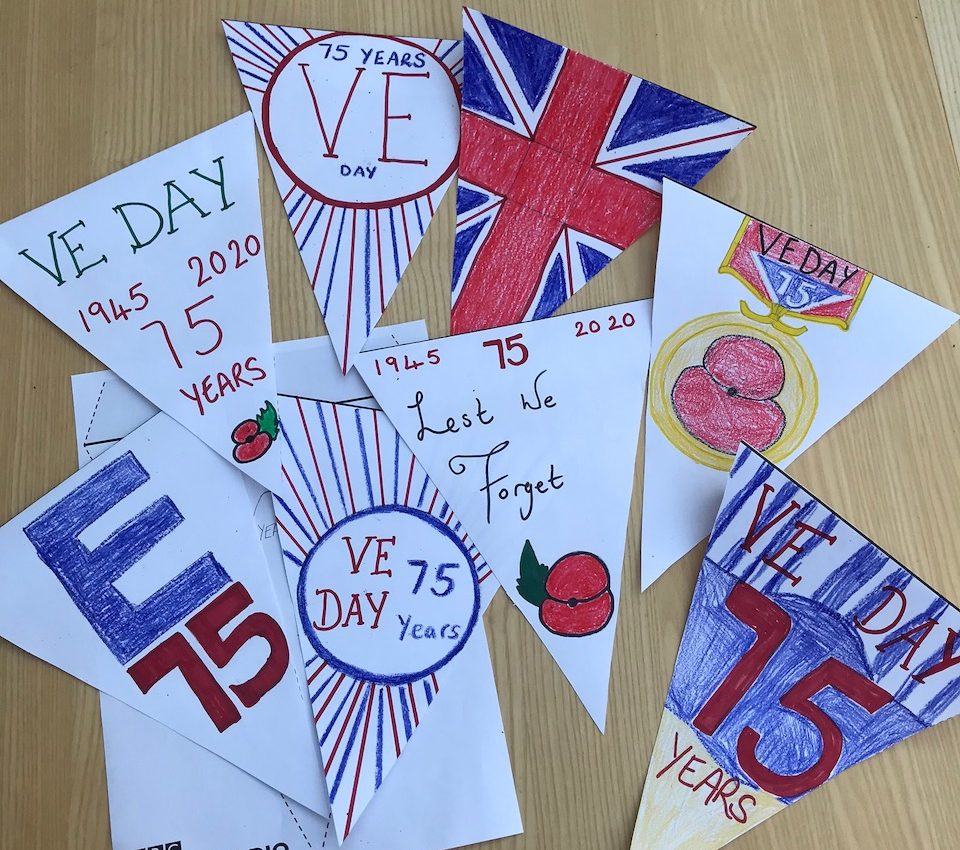 75 YEARS
VE
DAY
VE DAY
1945 2020
75
YEARS
VE DAY
75
1945 75 2020
Lest We
Forget
E
75
VE
DAY
75
Years
VE DAY
75
YEARS
YEA